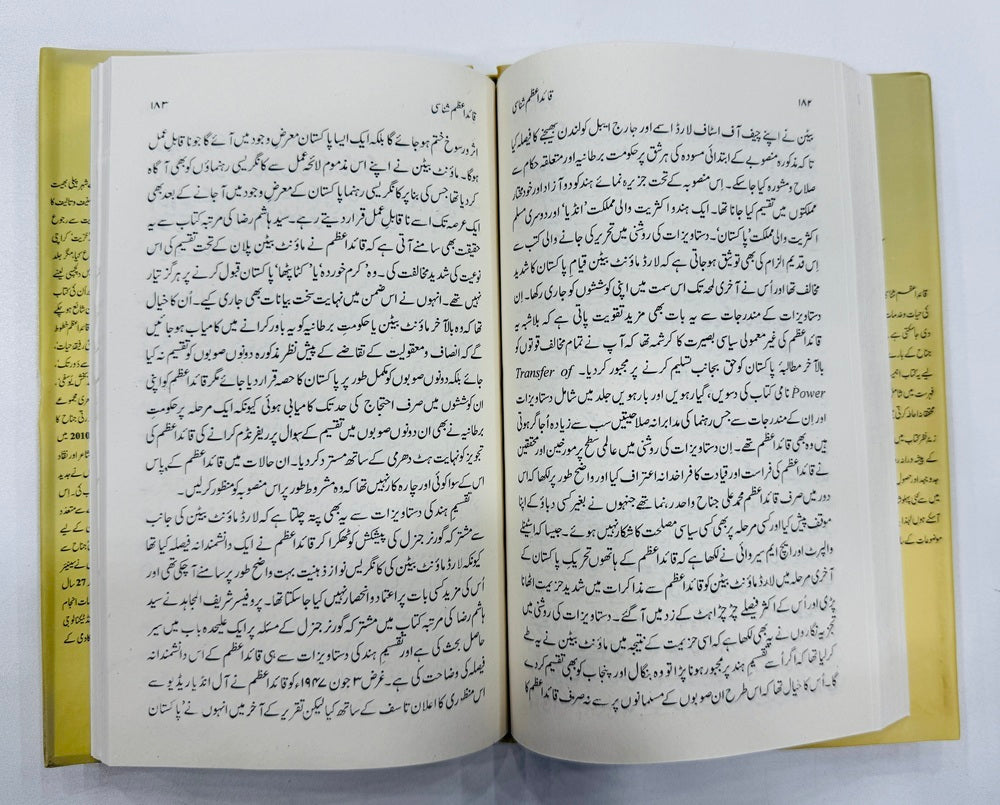 ۱۸۲
قائداعظم شناسی
بیٹن نے اپنے چیف آف اسٹاف لارڈ اسمے اور جارج ایبل کو لندن بھیجنے کا فیصلہ کیا
تاکہ مذکورہ منصوبے کے ابتدائی مسودہ کی ہر شق پر حکومت برطانیہ اور متعلقہ حکام سے
صلاح و مشورہ کیا جا سکے۔ اِس منصوبہ کے تحت جزیرہ نمائے ہند کو دو آزاد اور خود مختار
مملکتوں میں تقسیم کیا جانا تھا۔ ایک ہندو اکثریت والی مملکت 'انڈیا' اور دوسری مسلم
اکثریت والی مملکت 'پاکستان'۔ دستاویزات کی روشنی میں تحریر کی جانے والی کتب سے
اِس قدیم الزام کی بھی توثیق ہو جاتی ہے کہ لارڈ ماؤنٹ بیٹن قیامِ پاکستان کا شدید
مخالف تھا اور اُس نے آخری لمحہ تک اس سمت میں اپنی کوششوں کو جاری رکھا۔ اِن
دستاویزات کے مندرجات سے یہ بات بھی مزید تقویت پاتی ہے کہ بلا شبہ یہ
قائداعظم کی غیر معمولی سیاسی بصیرت کا کرشمہ تھا کہ آپ نے تمام مخالف قوتوں کو
بالآخر مطالبۂ پاکستان کو حق بجانب تسلیم کرنے پر مجبور کر دیا۔ Transfer of
Power نامی کتاب کی دسویں، گیارہویں اور بارہویں جلد میں شامل دستاویزات
اور اِن کے مندرجات سے جس رہنما کی مدابرانہ صلاحیتیں سب سے زیادہ اُجاگر ہوتی
ہیں وہ بھی قائداعظم تھے۔ اِن دستاویزات کی روشنی میں عالمی سطح پر مورخین اور محققین
نے قائداعظم کی فراست اور قیادت کا فراخدانہ اعتراف کیا اور واضح طور پر لکھا کہ اس
دور میں صرف قائداعظم محمد علی جناح واحد رہنما تھے جنہوں نے بغیر کسی دباؤ کے اپنا
موقف پیش کیا اور کسی مرحلہ پر بھی کسی سیاسی مصلحت کا شکار نہیں ہوئے۔ جیسا کہ اسٹینلے
والپرٹ اور ایچ ایم سیروائی نے لکھا ہے کہ قائداعظم کے ہاتھوں تحریک پاکستان کے
آخری مرحلہ میں لارڈ ماؤنٹ بیٹن کو قائداعظم سے مذاکرات میں شدید حزیمت اٹھانا
پڑی اور اُس کے اکثر فیصلے چڑ چڑاہٹ کے زد میں آ گئے۔ دستاویزات کی روشنی میں
تجزیہ نگاروں نے یہ بھی لکھا ہے کہ اسی حزیمت کے نتیجہ میں ماؤنٹ بیٹن نے یہ طے
کر لیا تھا کہ اگر اُسے تقسیمِ ہند پر مجبور ہونا پڑا تو وہ بنگال اور پنجاب کو بھی تقسیم کر دے
گا۔ اُس کا خیال تھا کہ اس طرح ان صوبوں کے مسلمانوں پر سے نہ صرف قائداعظم کا
قائداعظم شناسی
۱۸۳
اثر و رسوخ ختم ہو جائے گا بلکہ ایک ایسا پاکستان معرضِ وجود میں آئے گا جو ناقابل عمل
ہوگا۔ ماؤنٹ بیٹن نے اپنے اس مذموم لائحہ عمل سے کانگریسی رہنماؤں کو بھی آگاہ
کر دیا تھا جس کی بنا پر کانگریسی رہنما پاکستان کے معرضِ وجود میں آ جانے کے بعد بھی
ایک عرصہ تک اسے ناقابلِ عمل قرار دیتے رہے۔ سید ہاشم رضا کی مرتبہ کتاب سے یہ
حقیقت بھی سامنے آتی ہے کہ قائداعظم نے ماؤنٹ بیٹن پلان کے تحت تقسیم کی اس
نوعیت کی شدید مخالفت کی۔ وہ 'کرم خوردہ' یا 'کٹا پھٹا' پاکستان قبول کرنے پر ہرگز تیار
نہیں تھے۔ انہوں نے اس ضمن میں نہایت سخت بیانات بھی جاری کیے۔ اُن کا خیال
تھا کہ وہ بالآخر ماؤنٹ بیٹن یا حکومتِ برطانیہ کو یہ باور کرانے میں کامیاب ہو جائیں
گے کہ انصاف و معقولیت کے تقاضے کے پیشِ نظر مذکورہ دونوں صوبوں کو تقسیم نہ کیا
جائے بلکہ دونوں صوبوں کو مکمل طور پر پاکستان کا حصہ قرار دیا جائے مگر قائداعظم کو اپنی
ان کوششوں میں صرف احتجاج کی حد تک کامیابی ہوئی کیونکہ ایک مرحلہ پر حکومتِ
برطانیہ نے بھی ان دونوں صوبوں میں تقسیم کے سوال پر ریفرنڈم کرانے کی قائداعظم کی
تجویز کو نہایت ہٹ دھری کے ساتھ مسترد کر دیا۔ ان حالات میں قائداعظم کے پاس
اس کے سوا کوئی اور چارہ کار نہیں تھا کہ وہ مشروط طور پر اس منصوبہ کو منظور کر لیں۔
تقسیمِ ہند کی دستاویزات سے یہ بھی پتہ چلتا ہے کہ لارڈ ماؤنٹ بیٹن کی جانب
سے مشترکہ گورنر جنرل کی پیشکش کو ٹھکرا کر قائداعظم نے ایک دانشمندانہ فیصلہ کیا تھا
کیونکہ لارڈ ماؤنٹ بیٹن کی کانگریس نواز ذہنیت بہت واضح طور پر سامنے آ چکی تھی اور
اُس کی مزید کسی بات پر اعتماد و انحصار نہیں کیا جا سکتا تھا۔ پروفیسر شریف المجاہد نے سید
ہاشم رضا کی مرتبہ کتاب میں مشترکہ گورنر جنرل کے مسئلہ پر ایک علیحدہ باب میں سیر
حاصل بحث کی ہے اور تقسیمِ ہند کی دستاویزات سے ہی قائداعظم کے اس دانشمندانہ
فیصلہ کی وضاحت کی ہے۔ غرض ۳ جون ۱۹۴۷ء کو قائداعظم نے آل انڈیا ریڈیو سے
اس منظوری کا اعلان تاسف کے ساتھ کیا لیکن تقریر کے آخر میں انہوں نے 'پاکستان